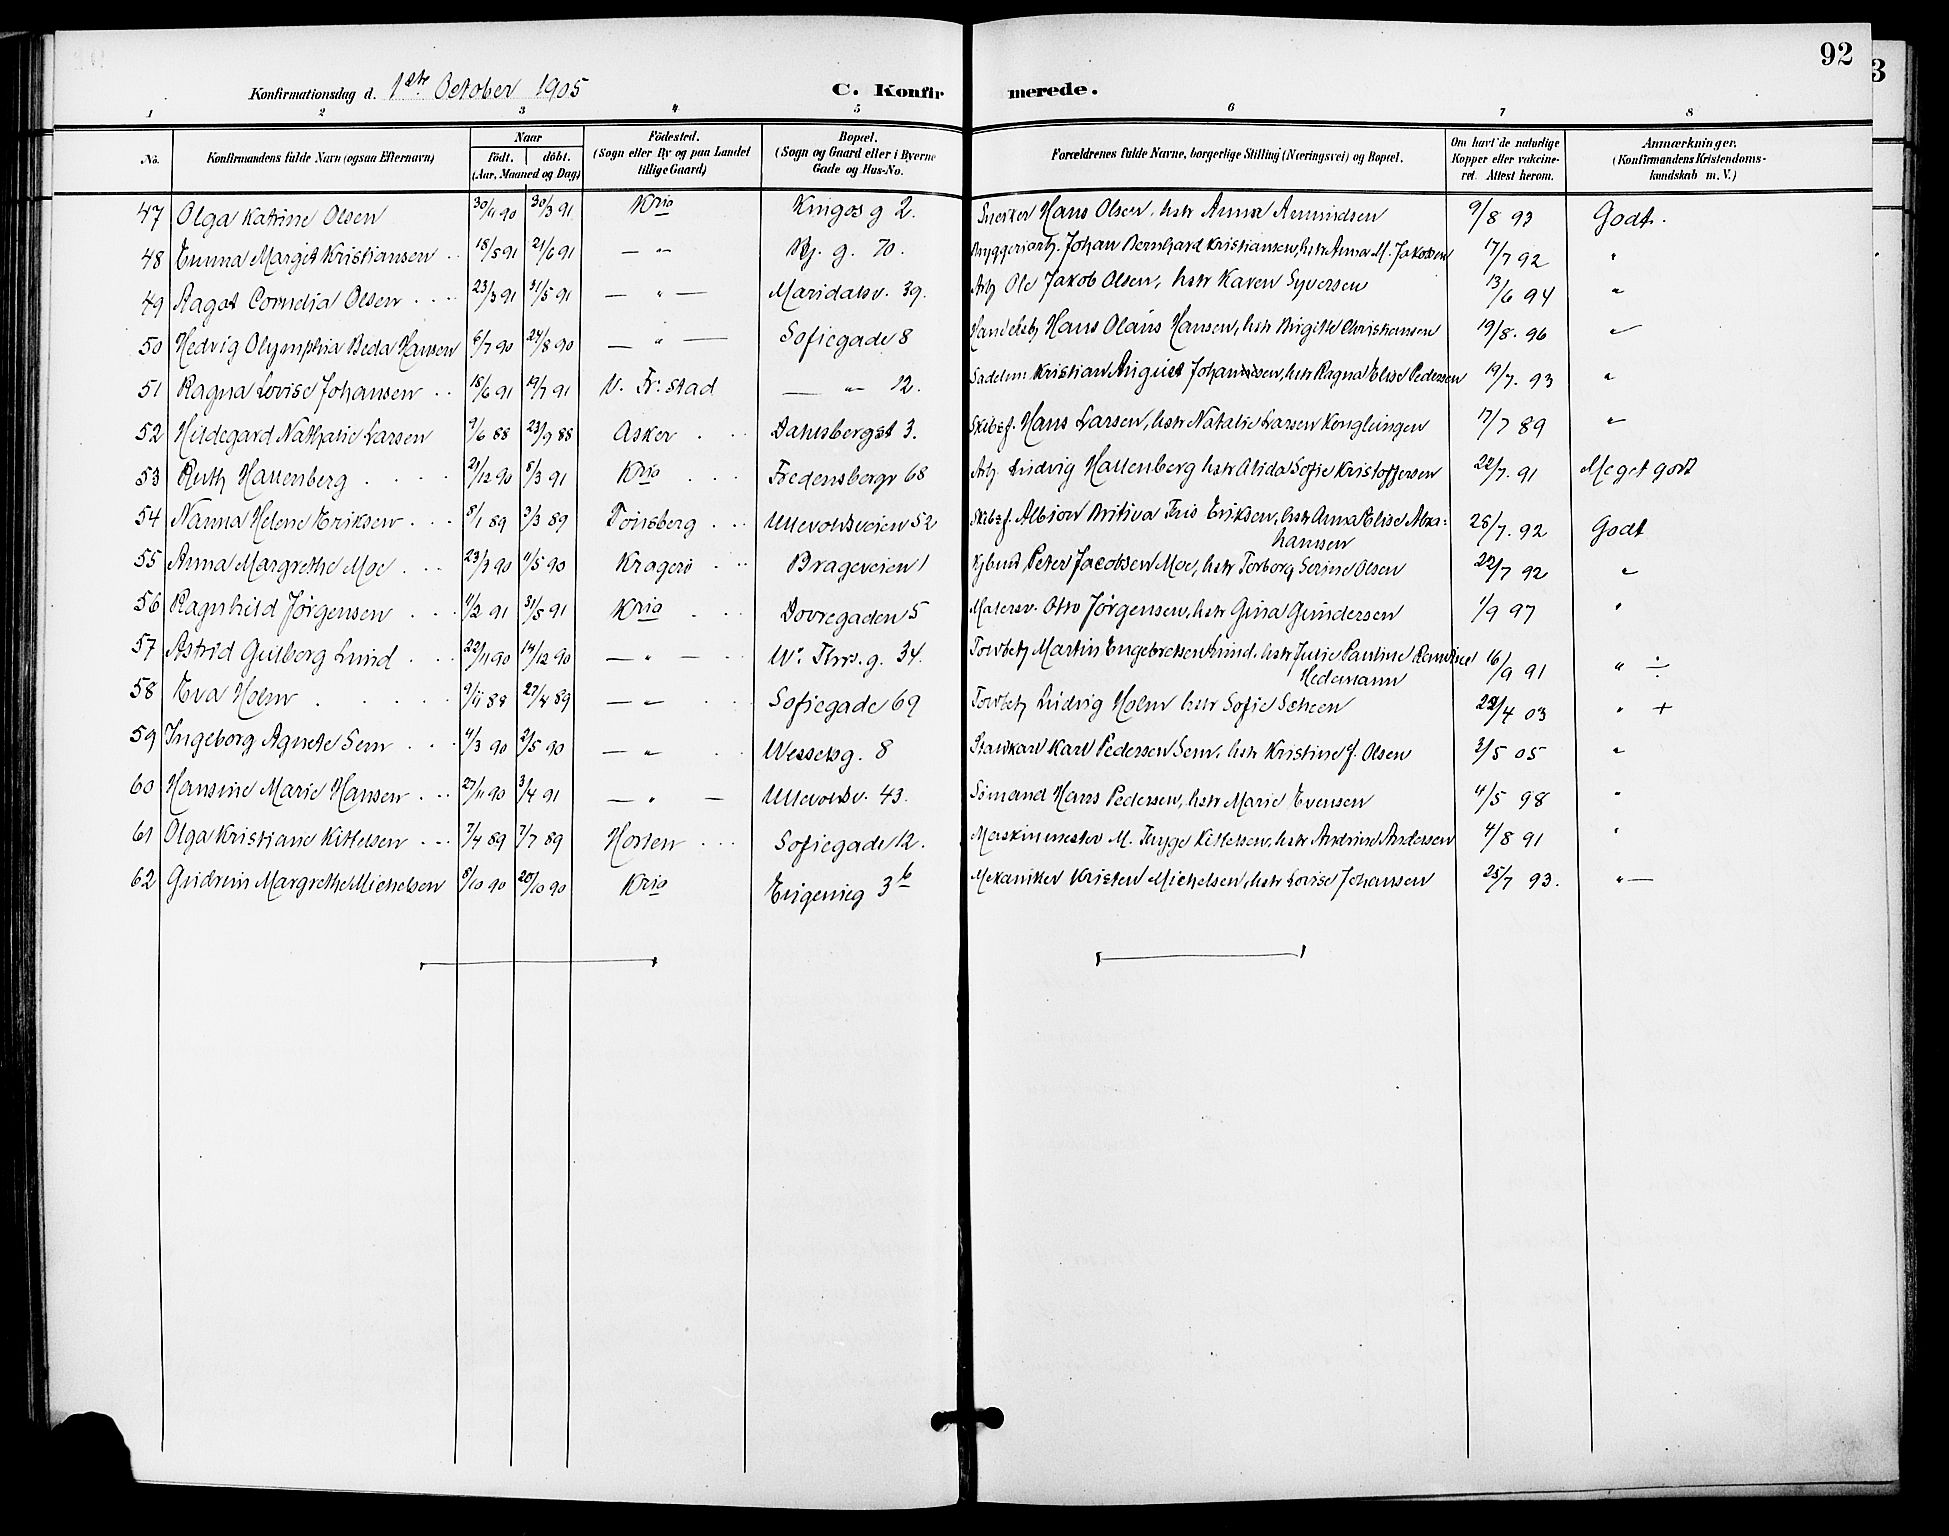 92
3
Konfirmationsdag d. 1ste October 1905 C. Konfirmerede.
1 2 3 4 5 6 7 8
No. Konfirmandens fulde Navn (ogsaa Efternavn) Naar födt. döbt. (Aar, Maaned og Dag) Födested. (Sogn eller By og paa Landet tillige Gaard) Bopæl. (Sogn og Gaard eller i Byerne Gade og Hus-No. Forældrenes fulde Navne, borgerlige Stilling (Næringsvei) og Bopæl. Om havt de naturlige Kopper eller vakcineret. Attest herom. Anmærkninger. (Konfirmandens Kristendomskundskab m. V.)
47 Olga Katrine Olsen 30/11 90 30/3 91 Kria Kingos g 2. Snekker Hans Olsen, hstr Anna Amundsen 9/8 93 Godt.
48 Emma Margit Kristiansen 18/5 91 21/6 91 — " — Bj. g. 70. Bryggeriarb. Johan Bernhard Kristiansen, hstr Anna M. Jakobsen 17/7 92 "
49 Aagot Cornelia Olsen 23/3 91 31/5 91 — " — Maridalsv. 39. Arb Ole Jakob Olsen, hstr Karen Syversen 13/6 94 "
50 Hedvig Olymphia Beda Hansen 6/7 90 24/8 90 — " — Sofiegade 8 Handelsb Hans Olaus Hansen, hstr Birgitte Christiansen 19/8. 96 "
51 Ragna Lovise Johansen 18/6 91 19/7 91 V. Fr:stad — " — 12. Sadelm. Kristian August Johannesen, hstr Ragna Elise Pedersen 19/7. 93 "
52 Hildegard Nathalie Larsen 9/6 88 23/9 88 Asker Dahlsbergst 3. Skibsf. Hans Larsen, hstr Natalie Larsen Konglungen 17/7 89 "
53 Ruth Hallenberg 21/12 90 8/3 91 Kria Fredensborgv 68 Arb Ludvig Hallenberg hstr Alida Sofie Kristoffersen 22/7. 91 Meget godt
54 Nanna Helene Eriksen 8/1 89 3/3 89 Tönsberg Ullevoldsveien 52 Skibsf. Albion Eriksen, hstr Anna Elise
hansen 25/7. 92 Godt
55 Anna Margrethe Moe 23/3 90 11/5 90 Kragerö Brageveien 1 Peter Jacobsen Moe, hstr Torborg Serine Olsen 22/7 92 "
56 Ragnhild Jørgensen 11/2 91 31/5 91 Kria Dovregaden 5 Malersv. Otto Jørgensen, hstr Gina Gundersen 1/9 97 "
57 Astrid Gulborg Lund 22/11 90 14/12 90 — " — W. Thrs. g. 34. Toldbetj Martin Engebretsen Lund. hstr Julie Pauline
Hedemann 16/9 91 " ÷
58 Eva Holm 9/11 88 27/4 89 — " — Sofiegade 69 Toldbetj Ludvig Holm hstr Sofie Scheen 22/4 03 " +
59 Ingeborg Agnete Sem 4/3 90 2/5 90 — " Wesselsg. 8 Staldkarl Karl Pedersen Sem, hstr Kristine J. Olsen 3/5 05 "
60 Hansine Marie Hansen 27/11 90 3/4 91 — " — Ullevoldsv. 43. Sømand Hans Pedersen, hstr Marie Evensen 4/5 98 "
61 Olga Kristiane Kittelsen 7/4 89 7/7 89 Horten Sofiegade 12. Maskinmester M. Thyge Kittelsen, hstr Andrine Andersen 4/8 91 "
62 Gudrun Margrethe Michelsen 8/10 90 20/10 90 Kria Eugenieg 3b Mekaniker Kristen Michelsen, hstr Lovise Johansen 25/7 93. " —